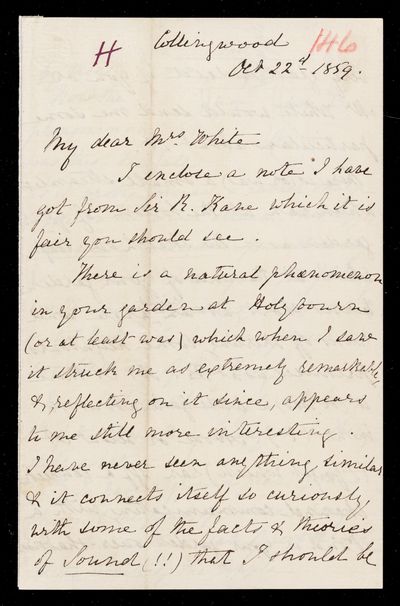 H
Collingwood
Oct 22d 1859.
My dear Mrs. White
I enclose a note I have
got from Sir R. Kane which it is
fair you should see.
There is a natural phænomenon
in your garden at Holybourn
(or at least was) which when I saw
it struck me as extremely remarkable,
& reflecting on it since, appears
to me still more interesting.
I have never seen anything similar
& it connects itself so curiously,
with some of the facts & theories
of Sound (!!) that I should be